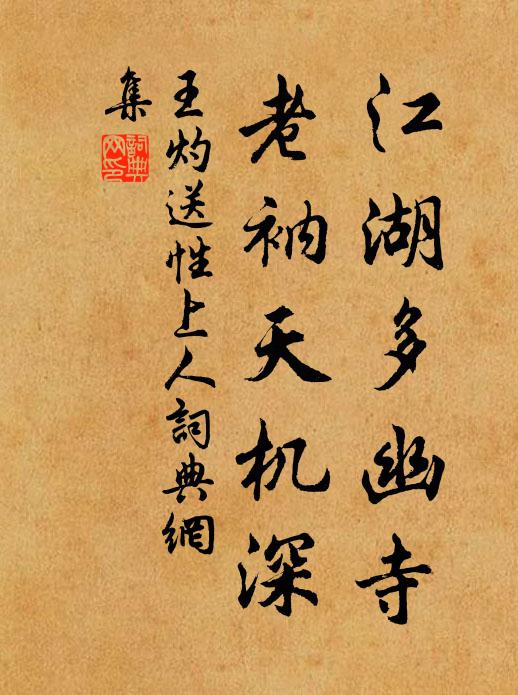 江湖多幽寺
老衲天机深
王灼送性上人詞典網
集
詞典網印